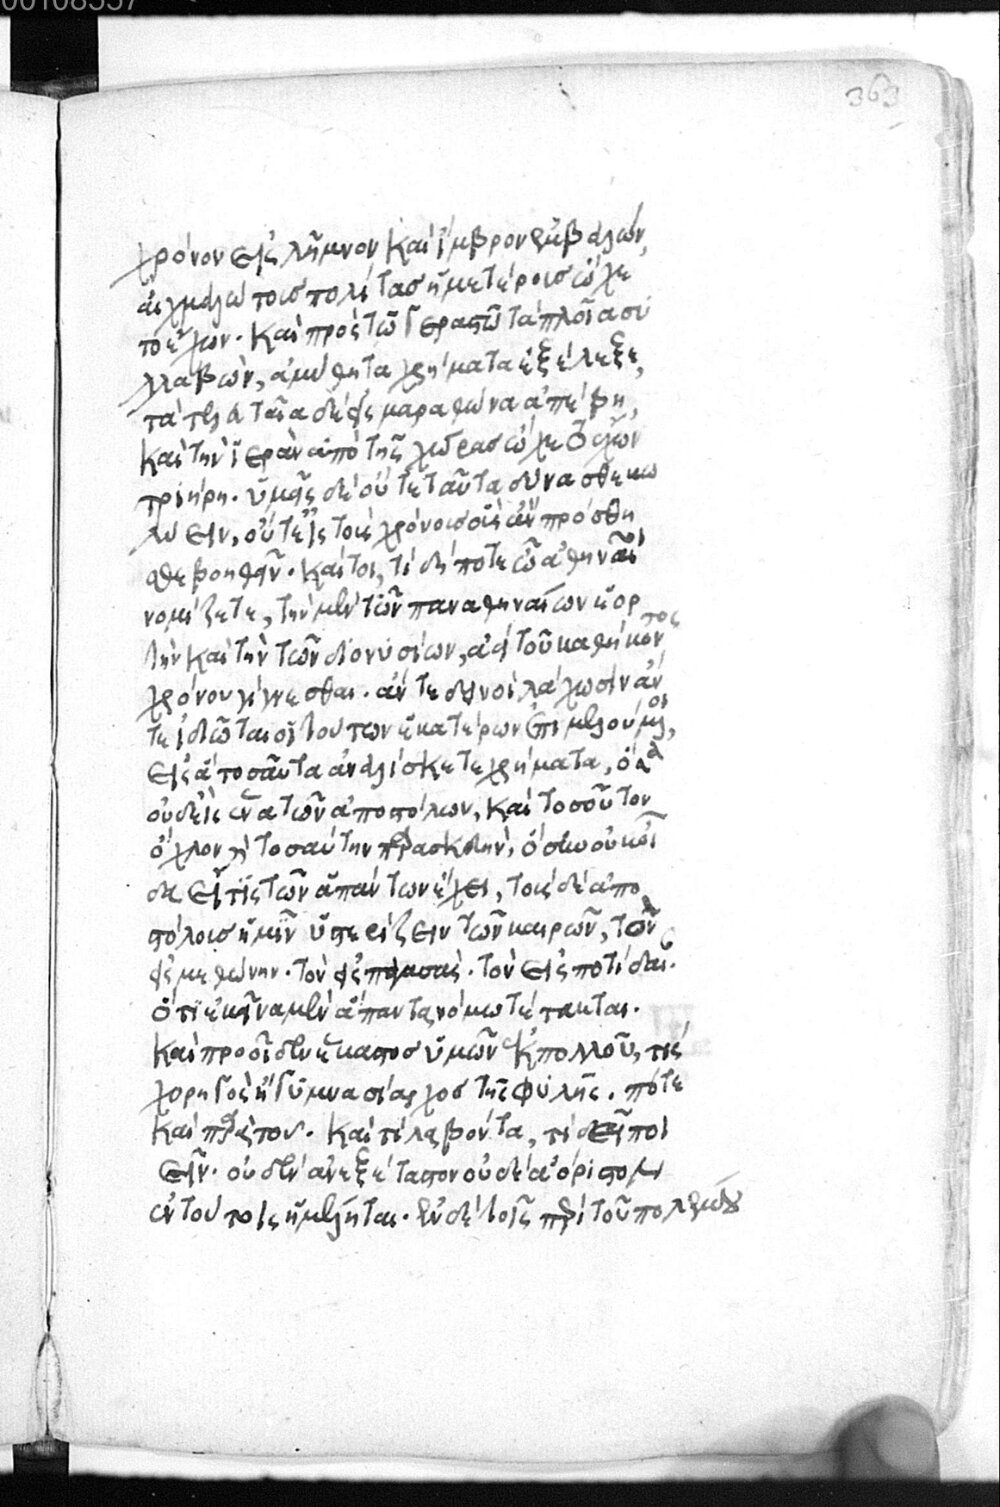 00108337
363
χρόνον εἰς λῆμνον καὶ ἴμβρον ἐμβαλών,
αἰχμαλώτους πολίτας ἡμετέρους ᾤχε
το ἔχων. καὶ πρὸς τῷ γεραιστῷ τὰ πλοῖα συ
λλαβών, ἀμύθητα χρήματα ἐξέλεξε,
τὰ τελευταῖα δὲ εἰς μαραθῶνα ἀπέβη,
καὶ τὴν ἱερὰν ἀπὸ τῆς χώρας ᾤχετο ἔχων
τριήρη. ὑμεῖς δὲ οὔτε ταῦτα δύνασθε κω
λύειν, οὔτε εἰς τοὺς χρόνους οὓς ἂν πρόσθη
σθε βοηθεῖν. καίτοι, τί δήποτε ὦ ἀθηναῖοι
νομίζετε, τὴν μὲν τῶν παναθηναίων ἑορ
τὴν καὶ τὴν τῶν διονυσίων, ἀεὶ τοῦ καθήκοντος
χρόνου γίγνεσθαι. ἄν τε δεινοὶ λάχωσιν ἄν
τε ἰδιῶται οἱ τούτων ἑκατέρων ἐπιμελούμενοι,
εἰς ἃ τοσαῦτα ἀναλίσκετε χρήματα, ὅσα
οὐδεὶς ἕνα τῶν ἀποστόλων, καὶ τοσοῦτον
ὄχλον καὶ τοσαύτην παρασκευὴν, ὅσην οὐκ οἶ
δα εἴ τις τῶν ἁπάντων ἔχει, τοὺς δὲ ἀπο
στόλους ἡμῖν ὑστερίζειν τῶν καιρῶν, τὸν
εἰς μεθώνην. τὸν εἰς παγασάς. τὸν εἰς ποτίδαι.
ὅτι ἐκεῖνα μὲν ἅπαντα νόμῳ τέτακται.
καὶ πρόοιδεν ἕκαστος ὑμῶν ἐκ πολλοῦ, τίς
χορηγὸς ἢ γυμνασίαρχος τῆς φυλῆς. πότε
καὶ παρὰ τοῦ. καὶ τί λαβόντα, τί δεῖ ποι
εῖν. οὐδὲν ἀνεξέταστον οὐδὲ ἀόριστον
ἐν τούτοις ἠμέληται. ἐν δὲ τοῖς περὶ τοῦ πολέμου